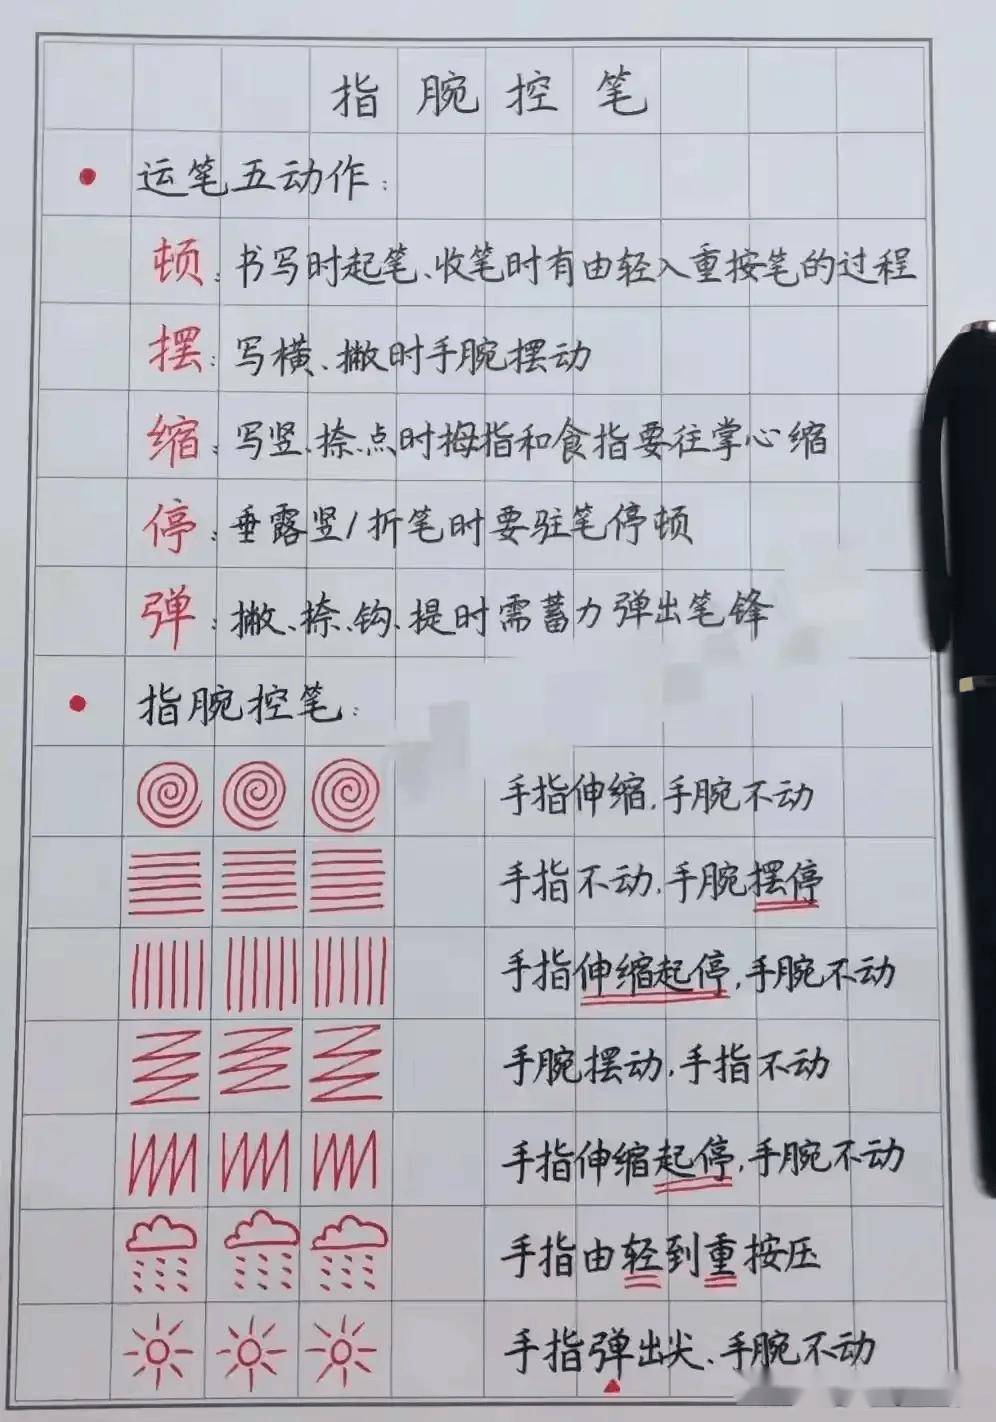 指腕控笔
运笔五动作:
顿:书写时起笔、收笔时有由轻入重按笔的过程
摆:写横、撇时手腕摆动
缩:写竖、捺、点时拇指和食指要往掌心缩
停:垂露竖/折笔时要驻笔停顿
弹:撇、捺、钩、提时需蓄力弹出笔锋
指腕控笔:
手指伸缩,手腕不动
手指不动,手腕摆停
手指伸缩起停,手腕不动
手腕摆动,手指不动
手指伸缩起停,手腕不动
手指由轻到重按压
手指弹出尖、手腕不动